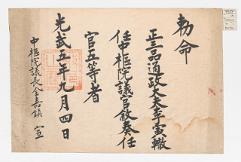 勅命
正三品通政大夫李寅轍
任中樞院議官敍奏任
官五等者
光武五年九月四日
中樞院議長金嘉鎭 宣